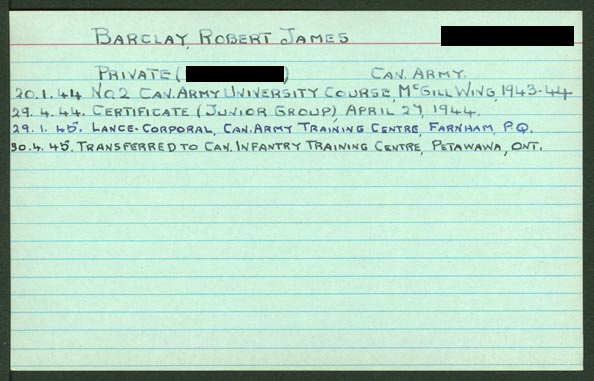 BARCLAY, ROBERT JAMES
PRIVATE ( ) CAN. ARMY.
20.1.44 NO.2 CAN. ARMY UNIVERSITY COURSE, McGILL WING, 1943-44
29.4.44. CERTIFICATE (JUNIOR GROUP), APRIL 27, 1944.
29.1.45. LANCE-CORPORAL, CAN. ARMY TRAINING CENTRE, FARNHAM, P.Q.
30.4.45. TRANSFERRED TO CAN. INFANTRY TRAINING CENTRE, PETAWAWA, ONT.